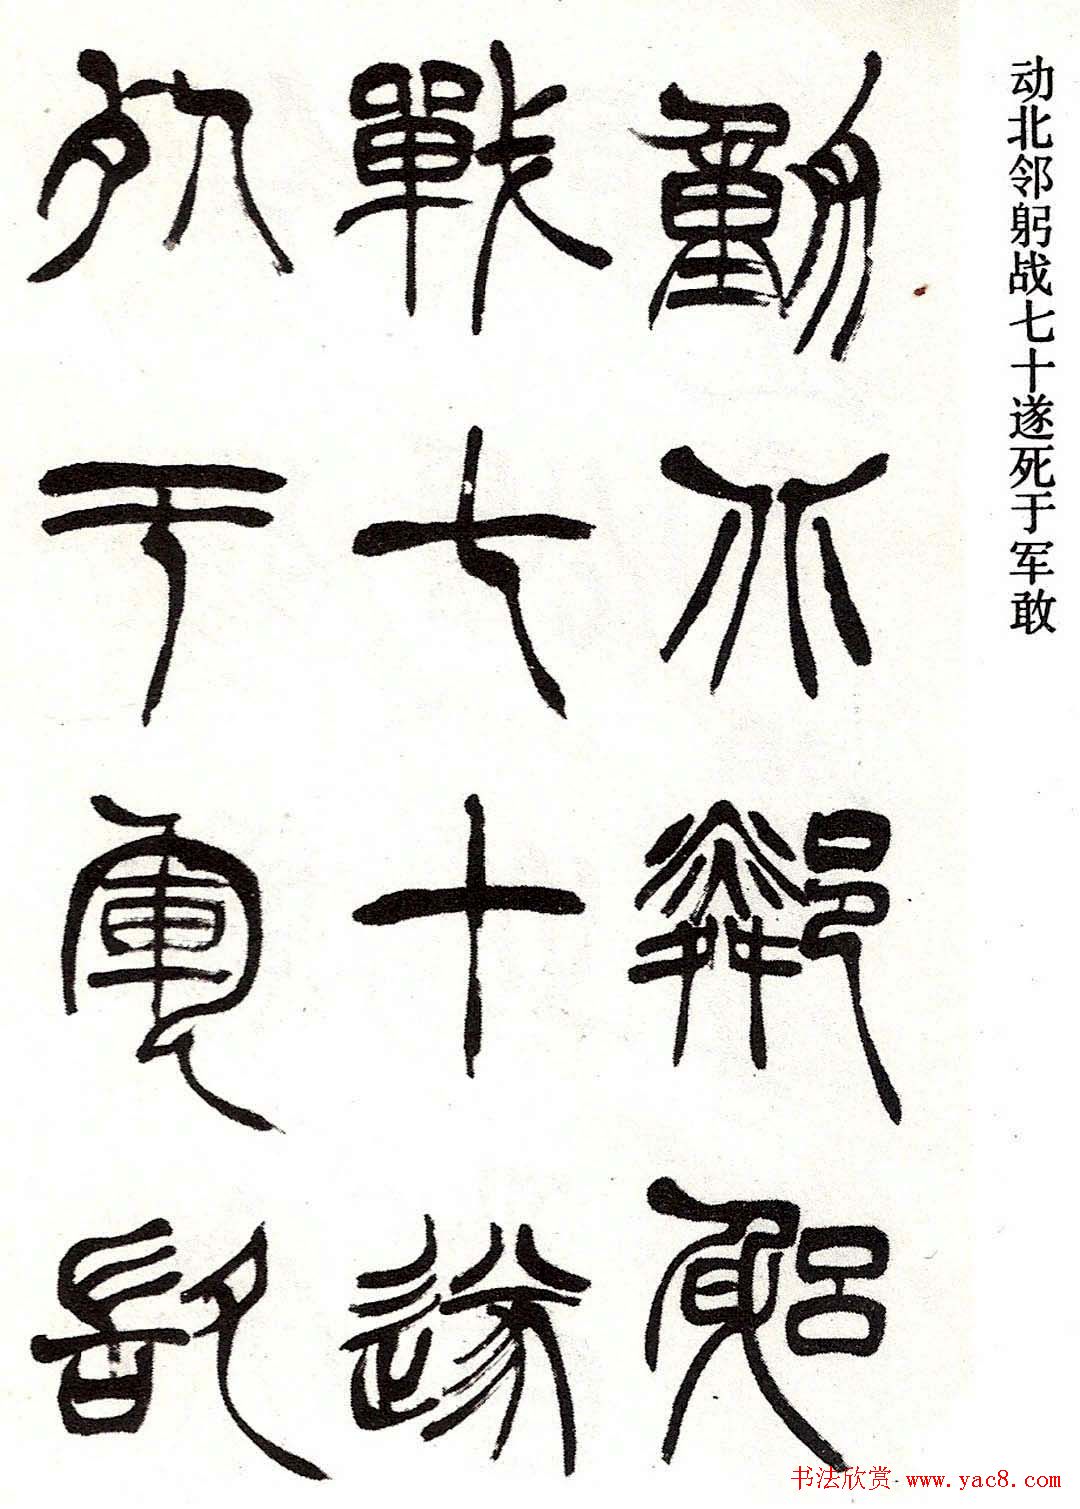 动北邻躬战七十遂死于军敢
動北鄰躳
戰七十遂
死于軍敢
书法欣赏·www.yac8.com